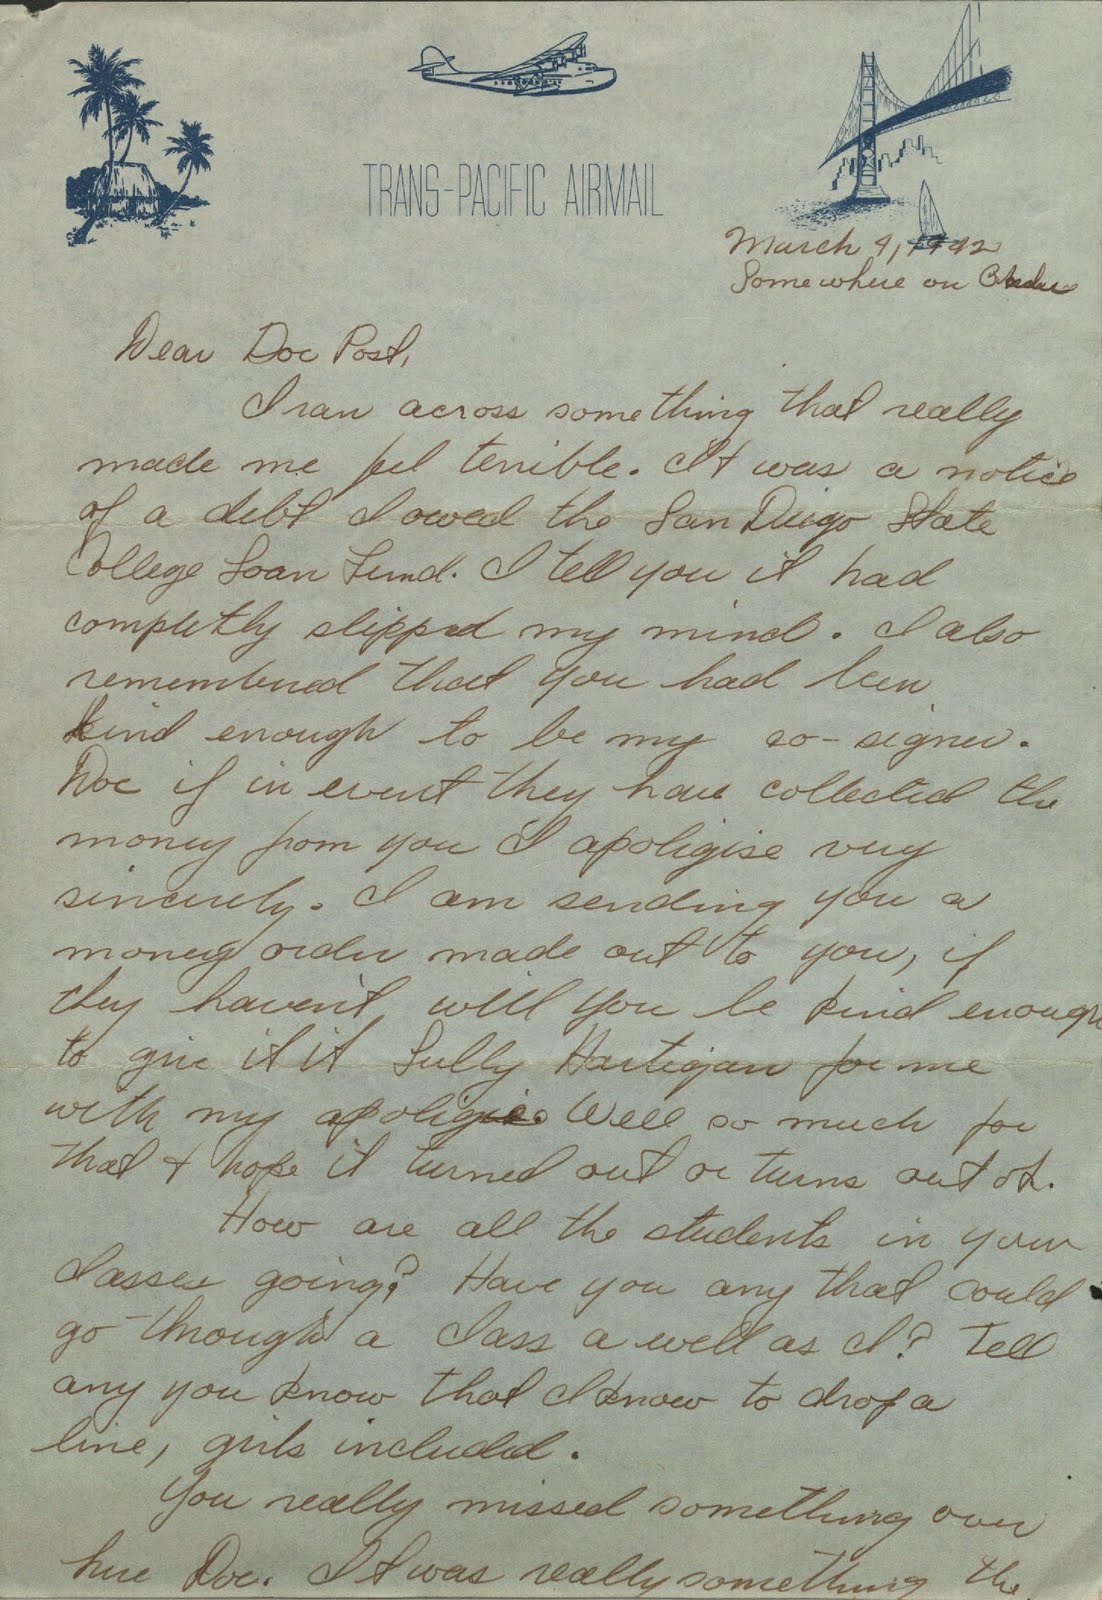 TRANS-PACIFIC AIRMAIL
March 4, 1942
Somewhere on
Dear Doc Post,
I ran across something that really
made me feel terrible. It was a notice
of a debt I owed the San Diego State
College Loan Fund. I tell you it had
completly slipped my mind. I also
remembered that you had been
kind enough to be my co-signer.
Doc if in event they have collected the
money from you I apoligise very
sincerely. I am sending you a
money order made out to you, if
they haven't will you be kind enough
to give it it Sully Hartigan for me
with my apoligies. Well so much for
that & hope it turned out or turns out ok.
How are all the students in your
classes going? Have you any that could
go through a class a well as I? Tell
any you know that I know to drop a
line, girls included.
You really missed something over
here Doc. It was really something the